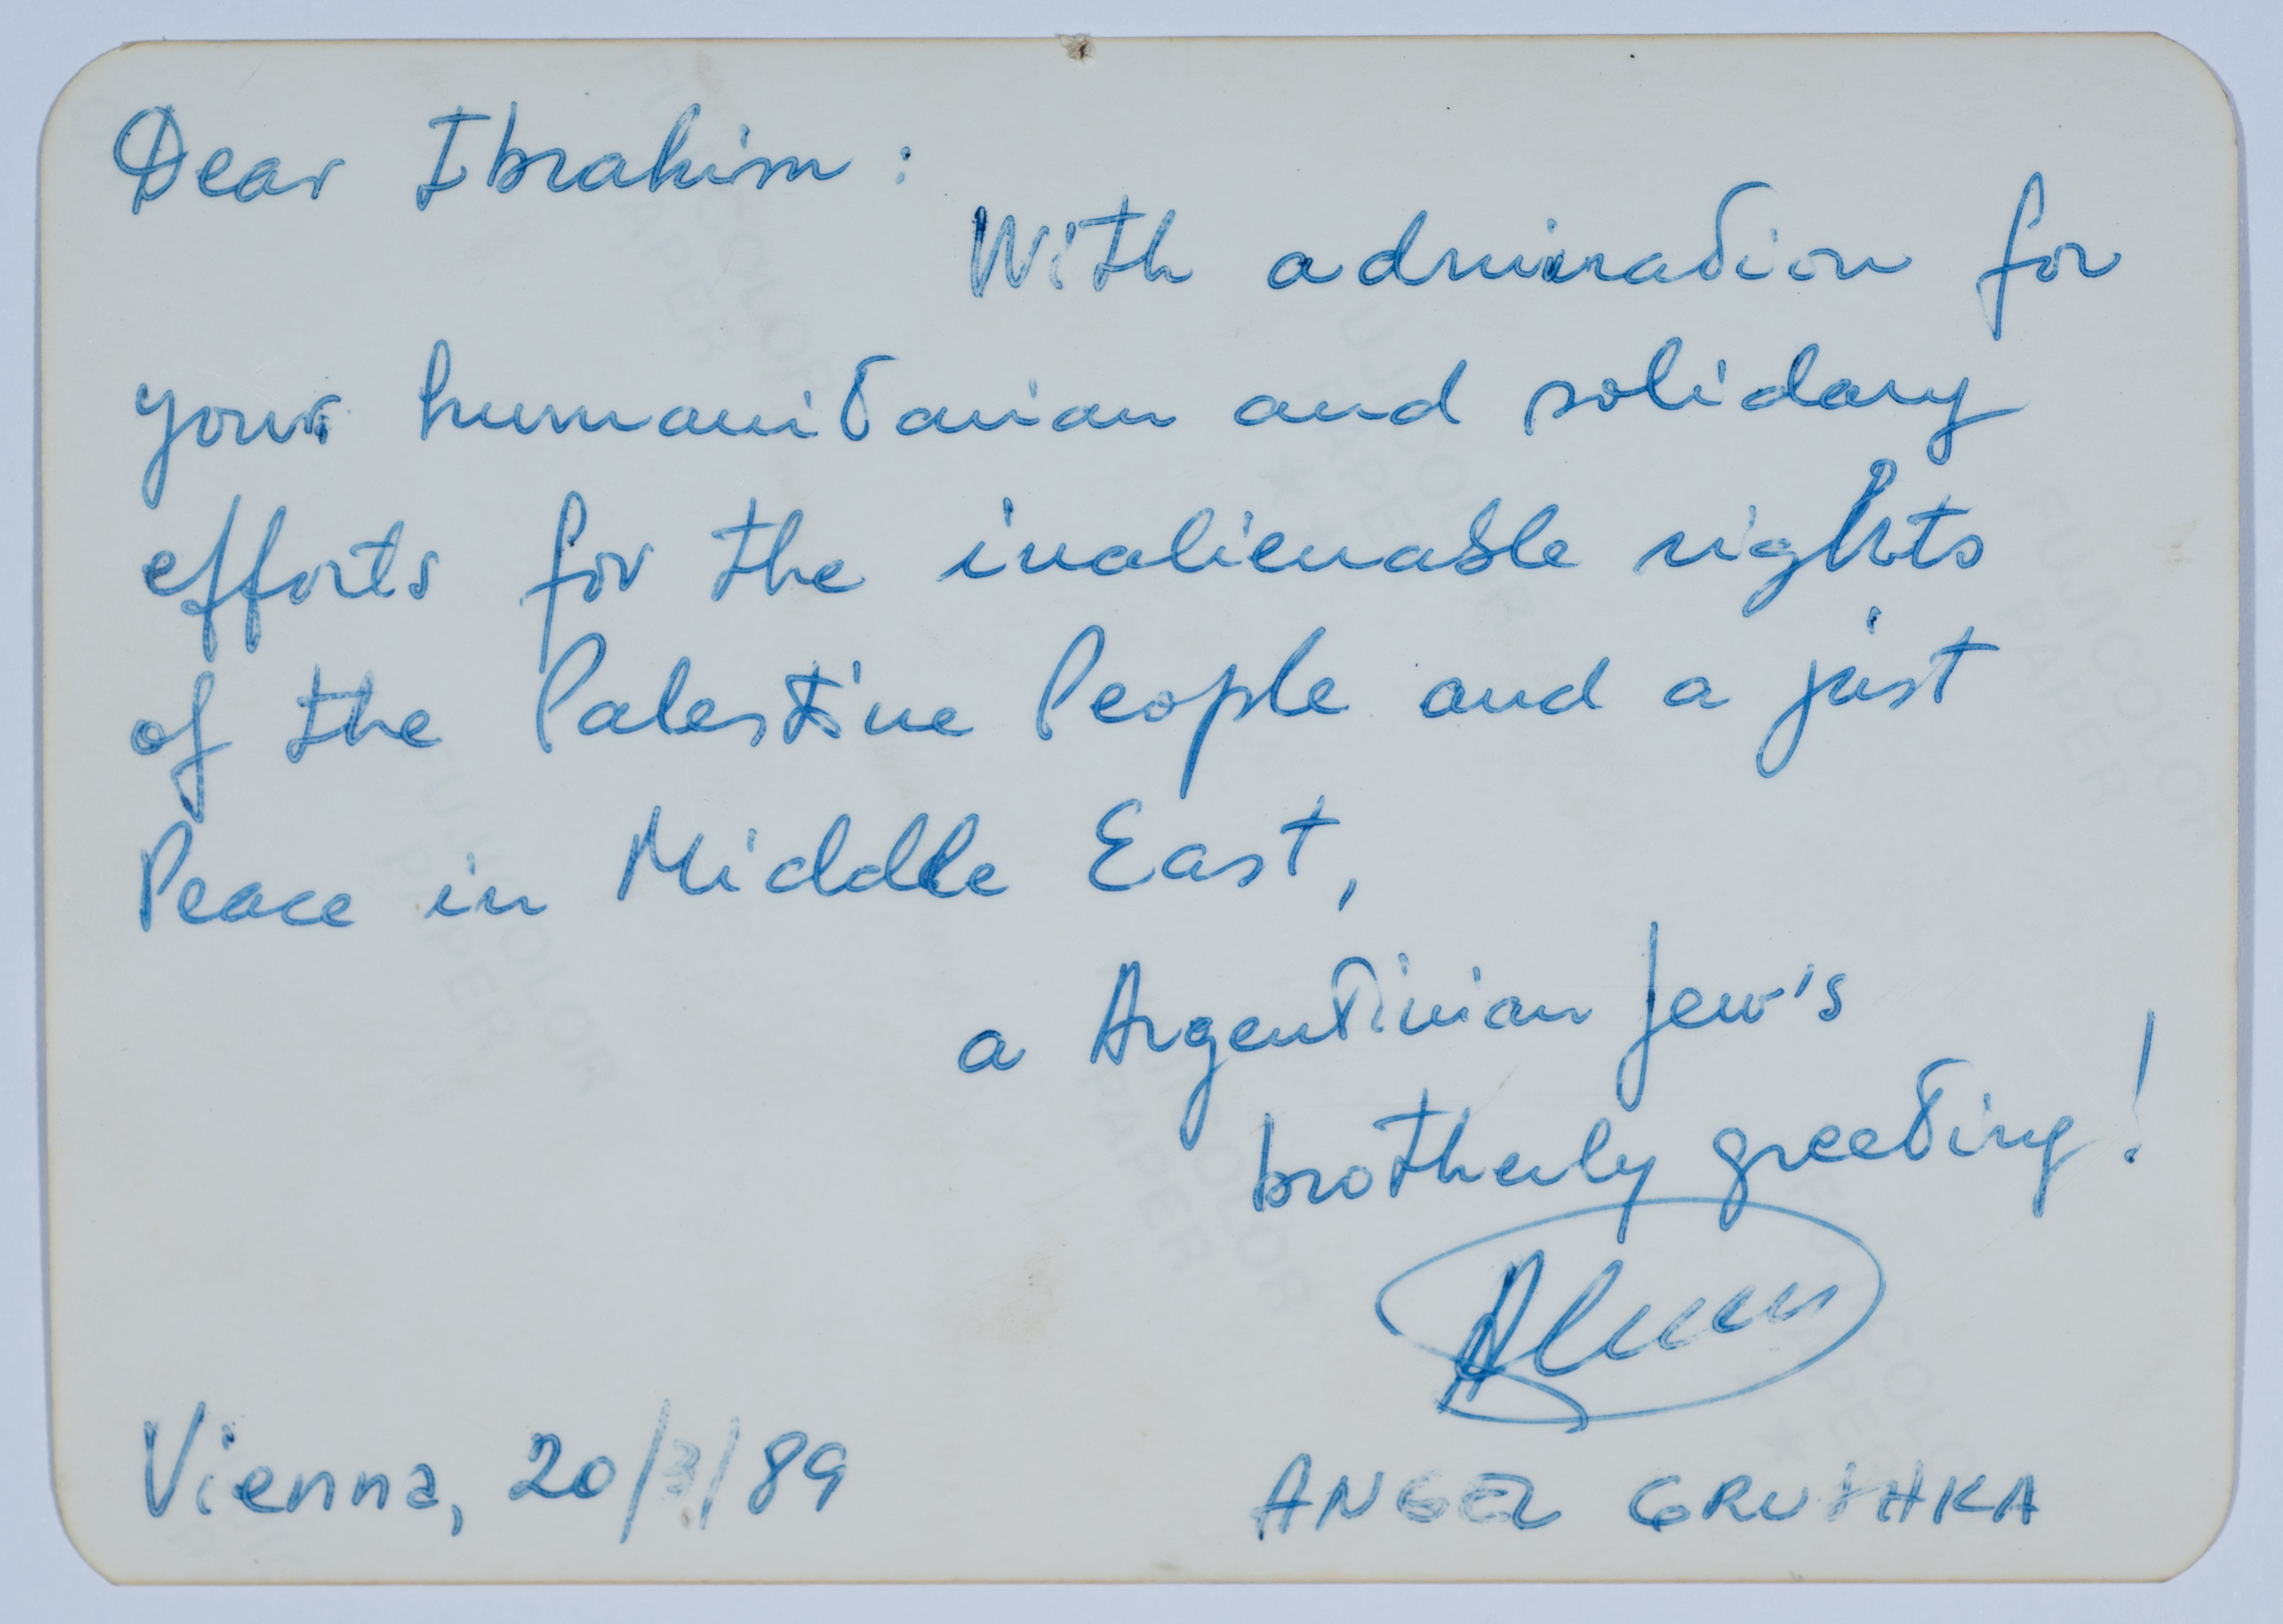 Dear Ibrahim:
With admiration for
your humanitarian and solidary
efforts for the inalienable rights
of the Palestine People and a just
Peace in Middle East,
a Argentinian Jew's
brotherly greeting!
Vienna, 20/3/89
ANGEL GRUSHKA
FUJICOLOR
PAPER
FUJICOLOR
PAPER
FUJICOLOR
PAPER
FUJICOLOR
PAPER
FUJICOLOR
PAPER